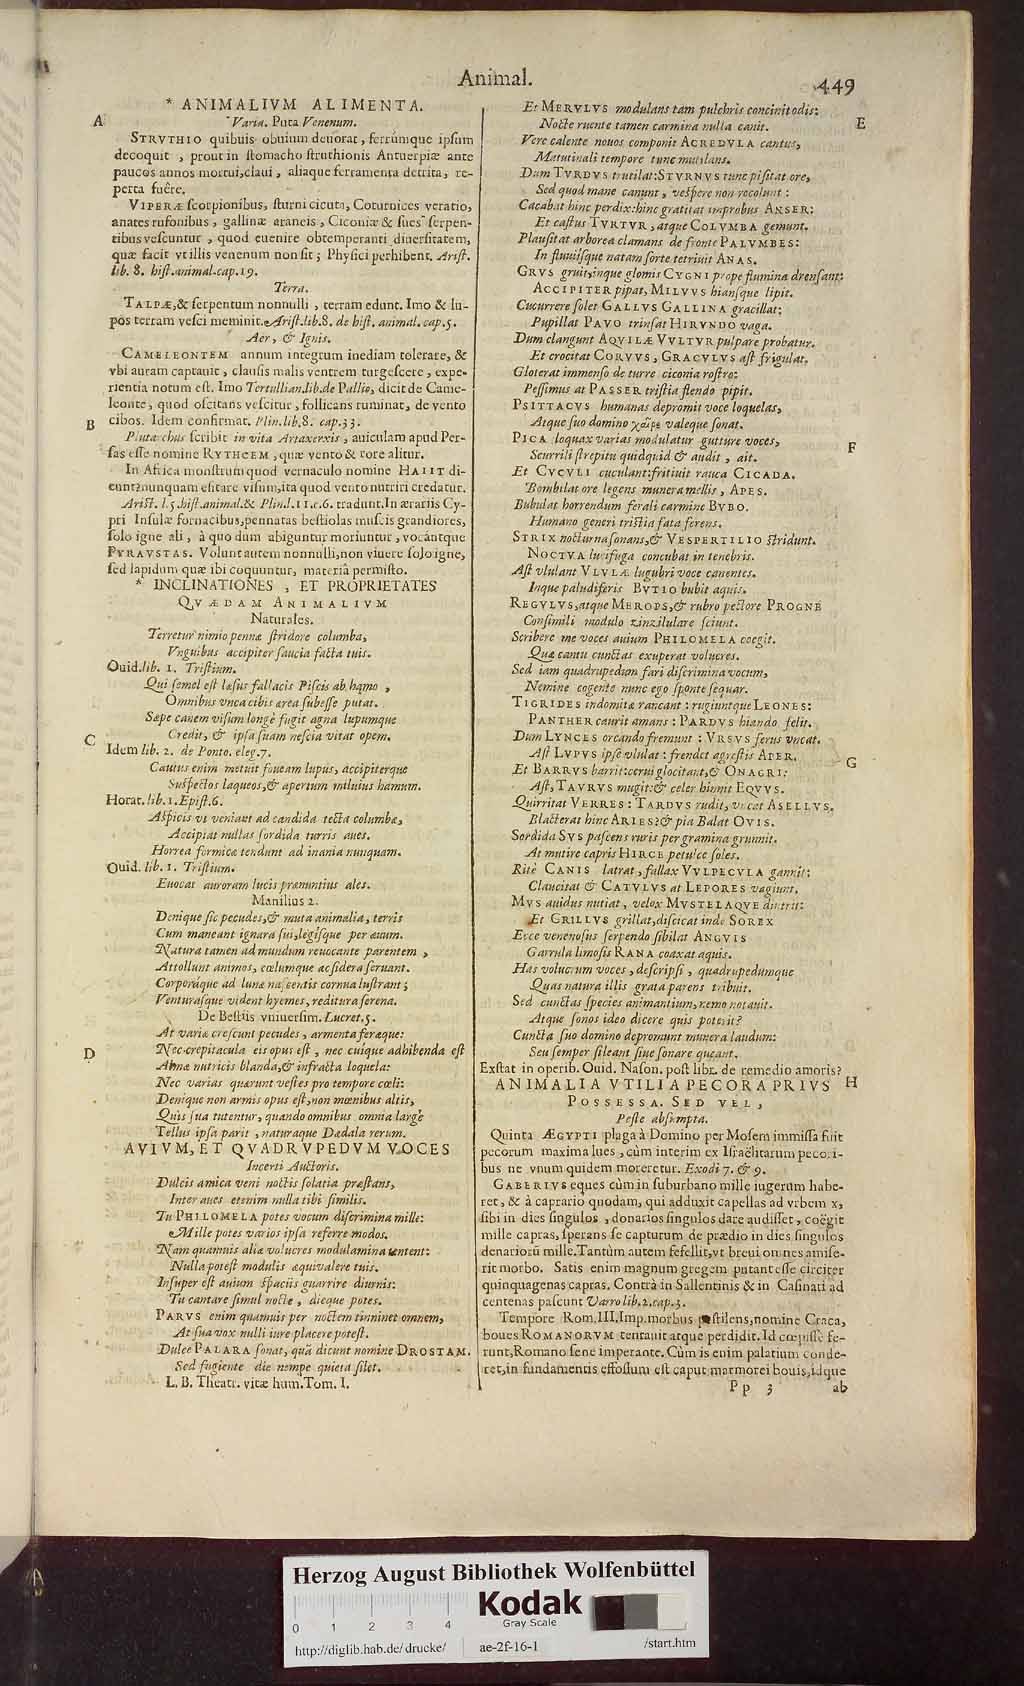 Animal.
449
* ANIMALIVM ALIMENTA.
A
Varia. Puta Venenum.
STRVTHIO quibuis obuium deuorat, ferrúmque ipsum
decoquit , prout in stomacho struthionis Antuerpiæ ante
paucos annos mortui, claui , aliaque ferramenta detrita, re-
perta fuêre.
VIPERÆ scorpionibus, sturni cicuta, Coturnices veratio,
anates rufonibus , gallinæ araneis , Ciconiæ & sues serpen-
tibus vescuntur , quod euenire obtemperanti diuersitatem,
quæ facit vt illis venenum non sit ; Physici perhibent. Arist.
lib. 8. hist. animal. cap. 19.
Terra.
TALPÆ, & serpentum nonnulli , terram edunt. Imo & lu-
pos terram vesci meminit. Arist. lib. 8. de hist. animal. cap. 5.
Aer, & Ignis.
CAMELEONTEM annum integrum inediam tolerare, &
vbi auram captauit , clausis malis ventrem turgescere , expe-
rientia notum est. Imo Tertullian. lib. de Pallio, dicit de Came-
leonte, quod oscitans vescitur, follicans ruminat, de vento
B
cibos. Idem confirmat. Plin. lib. 8. cap. 33.
Plutarchus scribit in vita Artaxerxis , auiculam apud Per-
sas esse nomine RYTHCEM , quæ vento & rore alitur.
In Africa monstrum quod vernaculo nomine HAIIT di-
cunt: nunquam esitare visum, ita quod vento nutriri credatur.
Arist. l. 5. hist. animal. & Plin. l. 11. c. 6. tradunt. In ærariis Cy-
pri Insulæ fornacibus, pennatas bestiolas muscis grandiores,
solo igne ali , à quo dum abiguntur moriuntur , vocántque
PYRAVSTAS. Volunt autem nonnulli, non viuere solo igne,
sed lapidum quæ ibi coquuntur, materiâ permisto.
* INCLINATIONES , ET PROPRIETATES
QVÆDAM ANIMALIVM
Naturales.
Terretur nimio pennæ stridore columba,
Vnguibus accipiter saucia facta tuis.
Ouid. lib. 1. Tristium.
Qui semel est læsus fallacis Piscis ab hamo ,
Omnibus vnca cibis æra subesse putat.
Sæpe canem visum longè fugit agna lupumque
C
Credit, & ipsa suam nescia vitat opem.
Idem lib. 2. de Ponto. eleg. 7.
Cautus enim metuit foueam lupus, accipiterque
Suspectos laqueos, & apertum miluius hamum.
Horat. lib. 1. Epist. 6.
Aspicis vt veniant ad candida tecta columbæ,
Accipiat nullas sordida turris aues.
Horrea formicæ tendunt ad inania nunquam.
Ouid. lib. 1. Tristium.
Euocat auroram lucis prænuntius ales.
Manilius 2.
Denique sic pecudes, & muta animalia, terris
Cum maneant ignara sui, legisque per æuum.
Natura tamen ad mundum reuocante parentem ,
Attollunt animos, cœlumque ac sidera seruant.
Corporáque ad lunæ nascentis cornua lustrant ;
Venturasque vident hyemes, reditura serena.
De Bestiis vniuersim. Lucret. 5.
At variæ crescunt pecudes , armenta feræque:
D
Nec crepitacula eis opus est , nec cuique adhibenda est
Almæ nutricis blanda, & infracta loquela:
Nec varias quærunt vestes pro tempore cœli:
Denique non armis opus est, non mœnibus altis,
Quis sua tutentur, quando omnibus omnia largè
Tellus ipsa parit , naturaque Dædala rerum.
AVIVM, ET QVADRVPEDVM VOCES
Incerti Auctoris.
Dulcis amica veni noctis solatia præstans,
Inter aues etenim nulla tibi similis.
Tu PHILOMELA potes vocum discrimina mille:
Mille potes varios ipsa referre modos.
Nam quamuis aliæ volucres modulamina tentent:
Nulla potest modulis æquivalere tuis.
Insuper est auium spaciis guarrire diurnis:
Tu cantare simul nocte , dieque potes.
PARVS enim quamuis per noctem tinninet omnem,
At sua vox nulli iure placere potest.
Dulce PALARA sonat, quã dicunt nomine DROSTAM.
Sed fugiente die nempe quieta silet.
L. B. Theatr. vitæ hum. Tom. I.
Et MERVLVS modulans tam pulchris concinit odis:
Nocte ruente tamen carmina nulla canit.
E
Vere calente nouos componit ACREDVLA cantus,
Matutinali tempore tunc mutilans.
Dum TVRDVS trutilat: STVRNVS tunc pisitat ore,
Sed quod mane canunt , vespere non recolunt :
Cacabat hinc perdix: hinc gratitat improbus ANSER:
Et castus TVRTVR, atque COLVMBA gemunt.
Plausitat arborea clamans de fronte PALVMBES:
In fluuiisque natans forte tetriuit ANAS.
GRVS gruit, inque glomis CYGNI prope flumina drensant:
ACCIPITER pipat, MILVVS hiansque lipit.
Cucurrere solet GALLVS GALLINA gracillat;
Pupillat PAVO trinsat HIRVNDO vaga.
Dum clangunt AQVILÆ VVLTVR pulpare probatur.
Et crocitat CORVVS, GRACVLVS ast frigulat.
Gloterat immenso de turre ciconia rostro:
Pessimus at PASSER tristia flendo pipit.
PSITTACVS humanas depromit voce loquelas,
Atque suo domino χαῖρε valeque sonat.
PICA loquax varias modulatur gutture voces,
F
Scurrili strepitu quidquid & audit , ait.
Et CVCVLI cuculant: fritiuit rauca CICADA.
Bombilat ore legens munera mellis , APES.
Bubulat horrendum ferali carmine BVBO.
Humano generi tristia fata ferens.
STRIX nocturna sonans, & VESPERTILIO stridunt.
NOCTVA lucifuga concubat in tenebris.
Ast vlulant VLVLÆ lugubri voce canentes.
Inque paludiferis BVTIO bubit aquis.
REGVLVS, atque MEROPS, & rubro pectore PROGNE
Consimili modulo zinzilulare sciunt.
Scribere me voces auium PHILOMELA coegit.
Quæ cantu cunctas exuperat volucres.
Sed iam quadrupedum fari discrimina vocum,
Nemine cogente nunc ego sponte sequar.
TIGRIDES indomitæ rancant : rugiuntque LEONES:
PANTHER caurit amans : PARDVS hiando felit.
Dum LYNCES orcando fremunt : VRSVS ferus vncat.
Ast LVPVS ipse vlulat : frendet agrestis APER.
G
Et BARRVS barrit: cerui glocitant, & ONAGRI:
Ast, TAVRVS mugit: & celer hinnit EQVVS.
Quirritat VERRES : TARDVS rudit, vncat ASELLVS,
Blacterat hinc ARIES: & pia Balat OVIS.
Sordida SVS pascens ruris per gramina grunnit.
At mutire capris HIRCE petulce soles.
Ritè CANIS latrat , fallax VVLPECVLA gannit:
Claucitat & CATVLVS at LEPORES vagiunt.
MVS auidus mutiat , velox MVSTELAQVE dintrit:
Et GRILLVS grillat, desicat inde SOREX
Ecce venenosus serpendo sibilat ANGVIS
Garrula limosis RANA coaxat aquis.
Has volucrum voces , descripsi , quadrupedumque
Quas natura illis grata parens tribuit.
Sed cunctas species animantium, nemo notauit.
Atque sonos ideo dicere quis poterit?
Cuncta suo domino depromunt munera laudum:
Seu semper sileant siue sonare queant.
Exstat in operib. Ouid. Nason. post libr. de remedio amoris?
ANIMALIA VTILIA PECORA PRIVS
H
POSSESSA. SED VEL,
Peste absumpta.
Quinta ÆGYPTI plaga à Domino per Mosem immissa fuit
pecorum maxima lues , cùm interim ex Israëlitarum pecori-
bus ne vnum quidem moreretur. Exodi 7. & 9.
GABERIVS eques cùm in suburbano mille iugerum habe-
ret, & à caprario quodam, qui adduxit capellas ad vrbem x,
sibi in dies singulos , denarios singulos dare audisset , coëgit
mille capras, sperans se capturum de prædio in dies singulos
denariorũ mille. Tantùm autem fefellit, vt breui omnes amise-
rit morbo. Satis enim magnum gregem putant esse circiter
quinquagenas capras. Contrà in Sallentinis & in Casinati ad
centenas pascunt Varro lib. 2. cap. 3.
Tempore Rom. III. Imp. morbus pestilens, nomine Craca,
boues ROMANORVM tentauit atque perdidit. Id cœpisse fe-
runt, Romano sene imperante. Cùm is enim palatium conde-
ret, in fundamentis effossum est caput marmorei bouis, idque
Pp 3
ab
Herzog August Bibliothek Wolfenbüttel
Kodak
Gray Scale
0 1 2 3 4
http://diglib.hab.de/drucke/
ae-2f-16-1
/start.htm